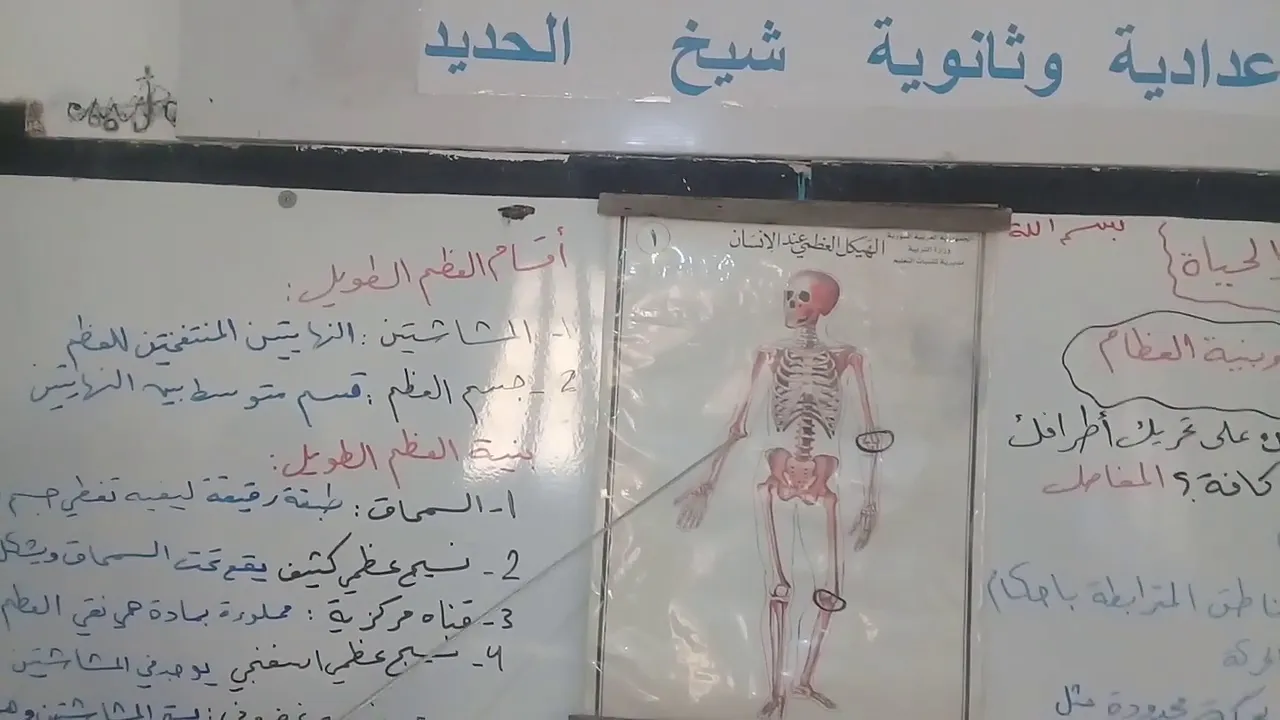 عدادية وثانوية شيخ الحديد
بسم الله
الحياة
وبنية العظام
على تحريك أطرافك
كافة؟ المفاصل
المناطق المترابطة باحكام
الحركة
محدودة مثل
١
الهيكل العظمي عند الانسان
الجمهورية العربية السورية
وزارة التربية
أقسام العظم الطويل:
1- المشاشتين: النهايتين المنتفختين للعظم
2- جسم العظم: قسم متوسط بين النهايتين
بنية العظم الطويل:
1- السمحاق: طبقة رقيقة ليفية تغطي جسم
2- نسيج عظمي كثيف يقع تحت السمحاق ويشكل
3- قناه مركزية: مملوءة بمادة هي نقي العظم
4- نسيج عظمي اسفنجي يوجد في المشاشتين